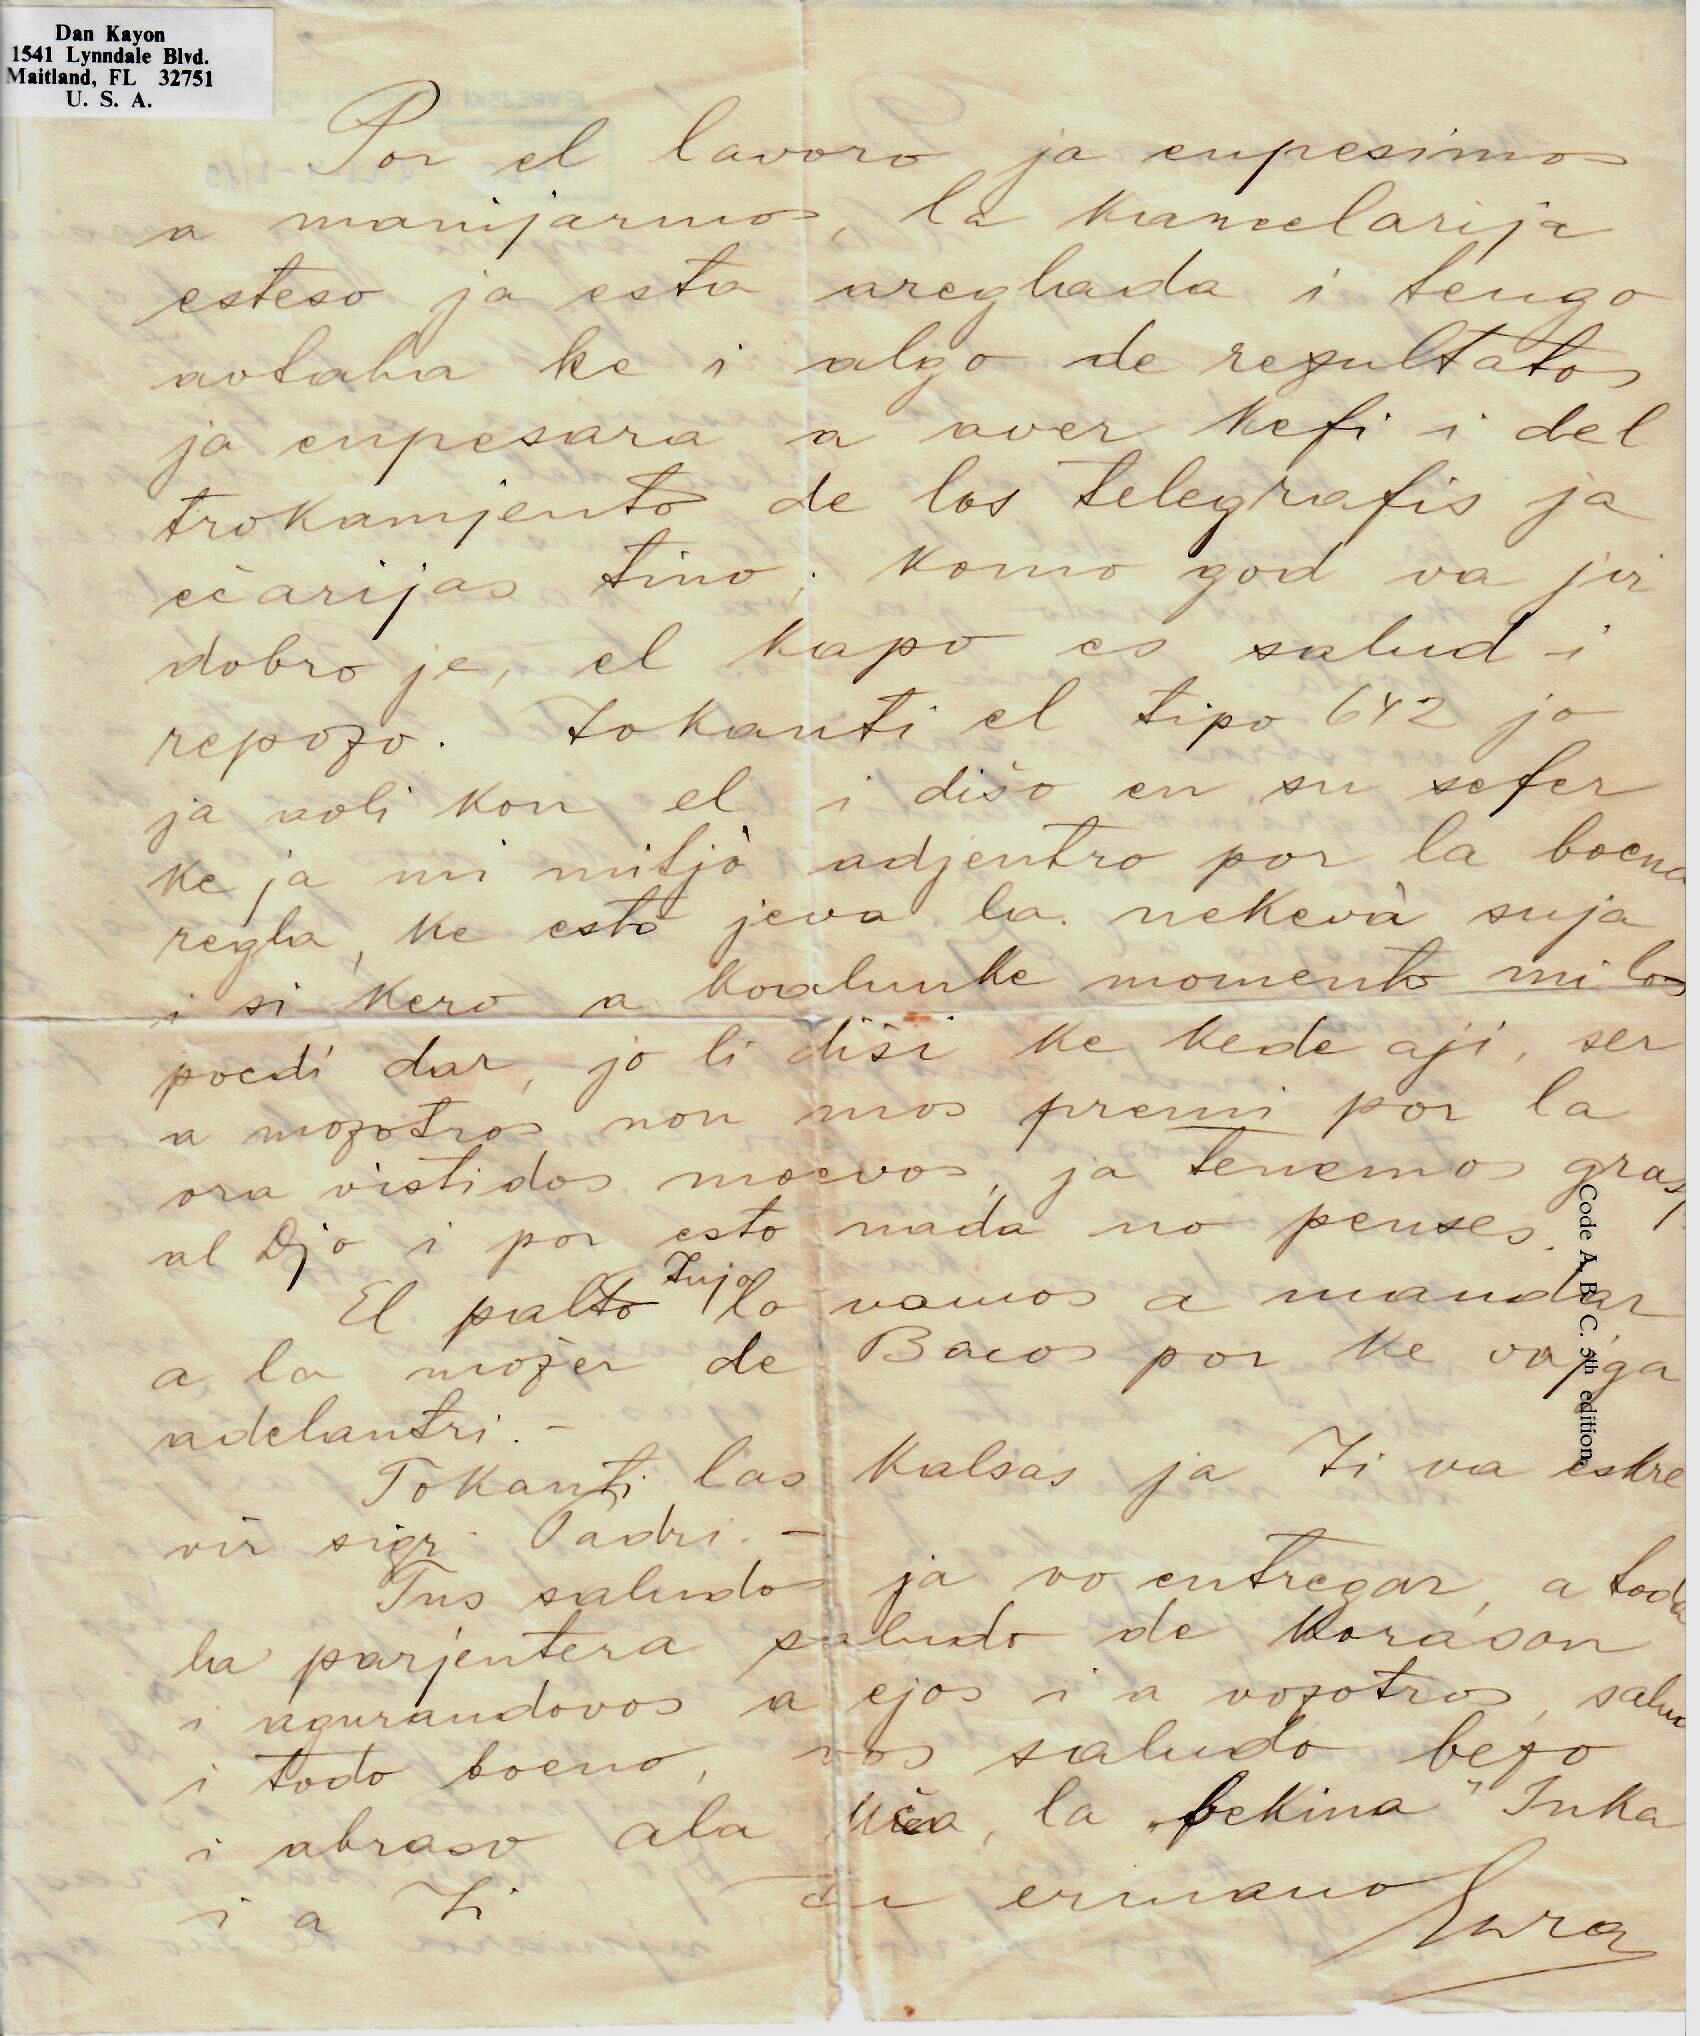 Dan Kayon
1541 Lynndale Blvd.
Maitland, FL 32751
U. S. A.
Por el lavoro ja enpesimos
a manijarmos, la kancelarija
esteso ja esta areglada i tengo
avtaha ke i algo de rezultatos
ja enpesara a aver kefi i del
trokamjento de los telegrafis ja
ečarijas tino; komo god va jir
dobro je, el kapo es salud i
repozo. Tokanti el tipo 642 jo
ja avli kon el i dišo en su sefer
ke ja mi mitjo adjentro por la boena
regla, ke esto jeva la nekeva suja
i si kero a koalunke momento mi los
poedi dar, jo li diši ke kede aji, ser
a mozotros non mos premi por la
ora vistidos moevos, ja tenemos
al Djo i por esto nada no penses.
El palto Tujo lo vamos a mandar
a la možer de Bacos por ke vajga
adelantri. -
Tokanti las kalsas ja Ti va eskre
vir sigr Padri. -
Tus saludos ja vo entregar, a toda
la parjentera saludo de korason
i agurandovos a ejos i a vozotros, salud
i todo boeno, vos saludo bezo
i abraso ala la „bekina" Inka
i a Ti tu ermano
Code A. B. C. 5th edition.